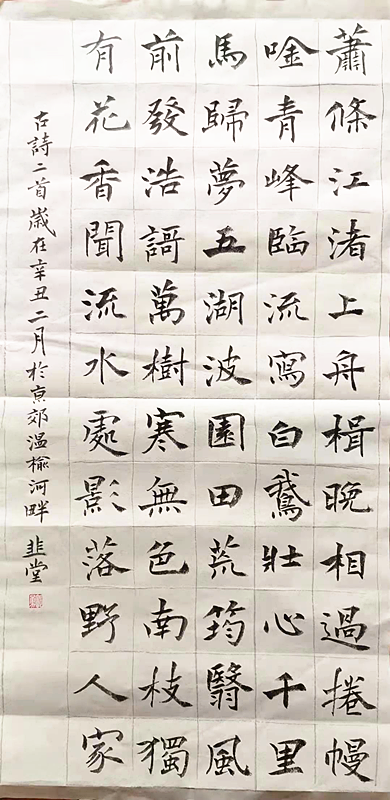 蕭條江渚上舟楫晚相過捲幔
唫青峰臨流寫白鵞壯心千里
馬歸夢五湖波園田荒筠翳風
前發浩謌萬樹寒無色南枝獨
有花香聞流水處影落野人家
古詩二首歲在辛丑二月於京郊温榆河畔 韭堂